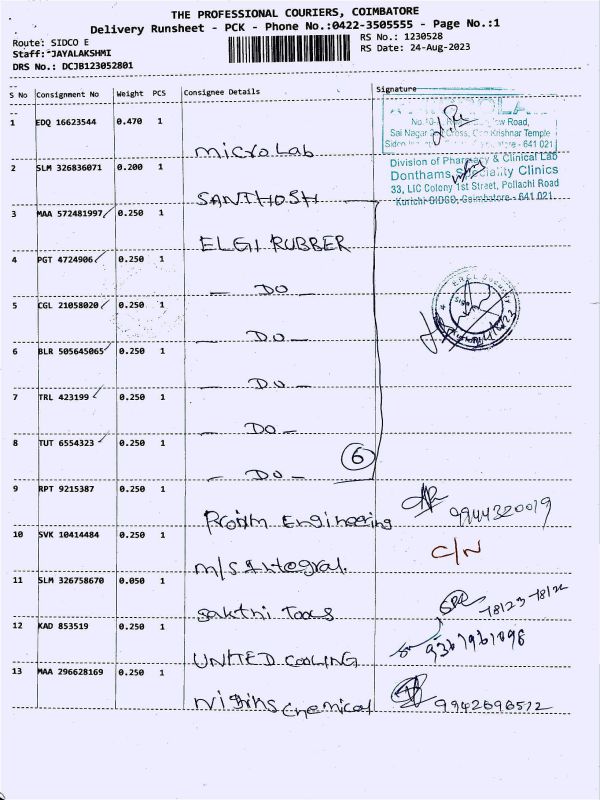 THE PROFESSIONAL COURIERS, COIMBATORE
Delivery Runsheet - PCK - Phone No.:0422-3505555 - Page No.:1
Route: SIDCO E
Staff:*JAYALAKSHMI
DRS No.: DCJB123052801
RS No.: 1230528
RS Date: 24-Aug-2023
S No Consignment No Weight PCS Consignee Details Signature
1 EDQ 16623544 0.470 1
micro Lab
Sai Nagar Cross, Krishnar Temple
641 021
2 SLM 326836071 0.200 1
SANTHOSH
Division of Pharmacy & Clinical Lab
Donthams Speciality Clinics
33, LIC Colony 1st Street, Pollachi Road
Kurichi SIDCO, Coimbatore - 641 021.
3 MAA 572481997 0.250 1
ELGI RUBBER
4 PGT 4724906 0.250 1
— DO —
5 CGL 21058020 0.250 1
— DO —
6 BLR 505645065 0.250 1
— DO —
7 TRL 423199 0.250 1
— DO —
8 TUT 6554323 0.250 1
— DO —
6
9 RPT 9215387 0.250 1
Engineering
9944320019
10 SVK 10414484 0.250 1
m/s Integral
C/N
11 SLM 326758670 0.050 1
Sakthi Tools
12 KAD 853519 0.250 1
UNITED COOLING
13 MAA 296628169 0.250 1
Chemical